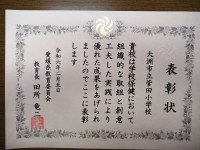 表彰状
大洲市立菅田小学校
貴校は学校保健において
組織的な取組と創意
工夫した実践により
優れた成果をあげられ
ましたのでここに表彰
します
令和六年二月五日
愛媛県教育委員会
教育長 田所竜二